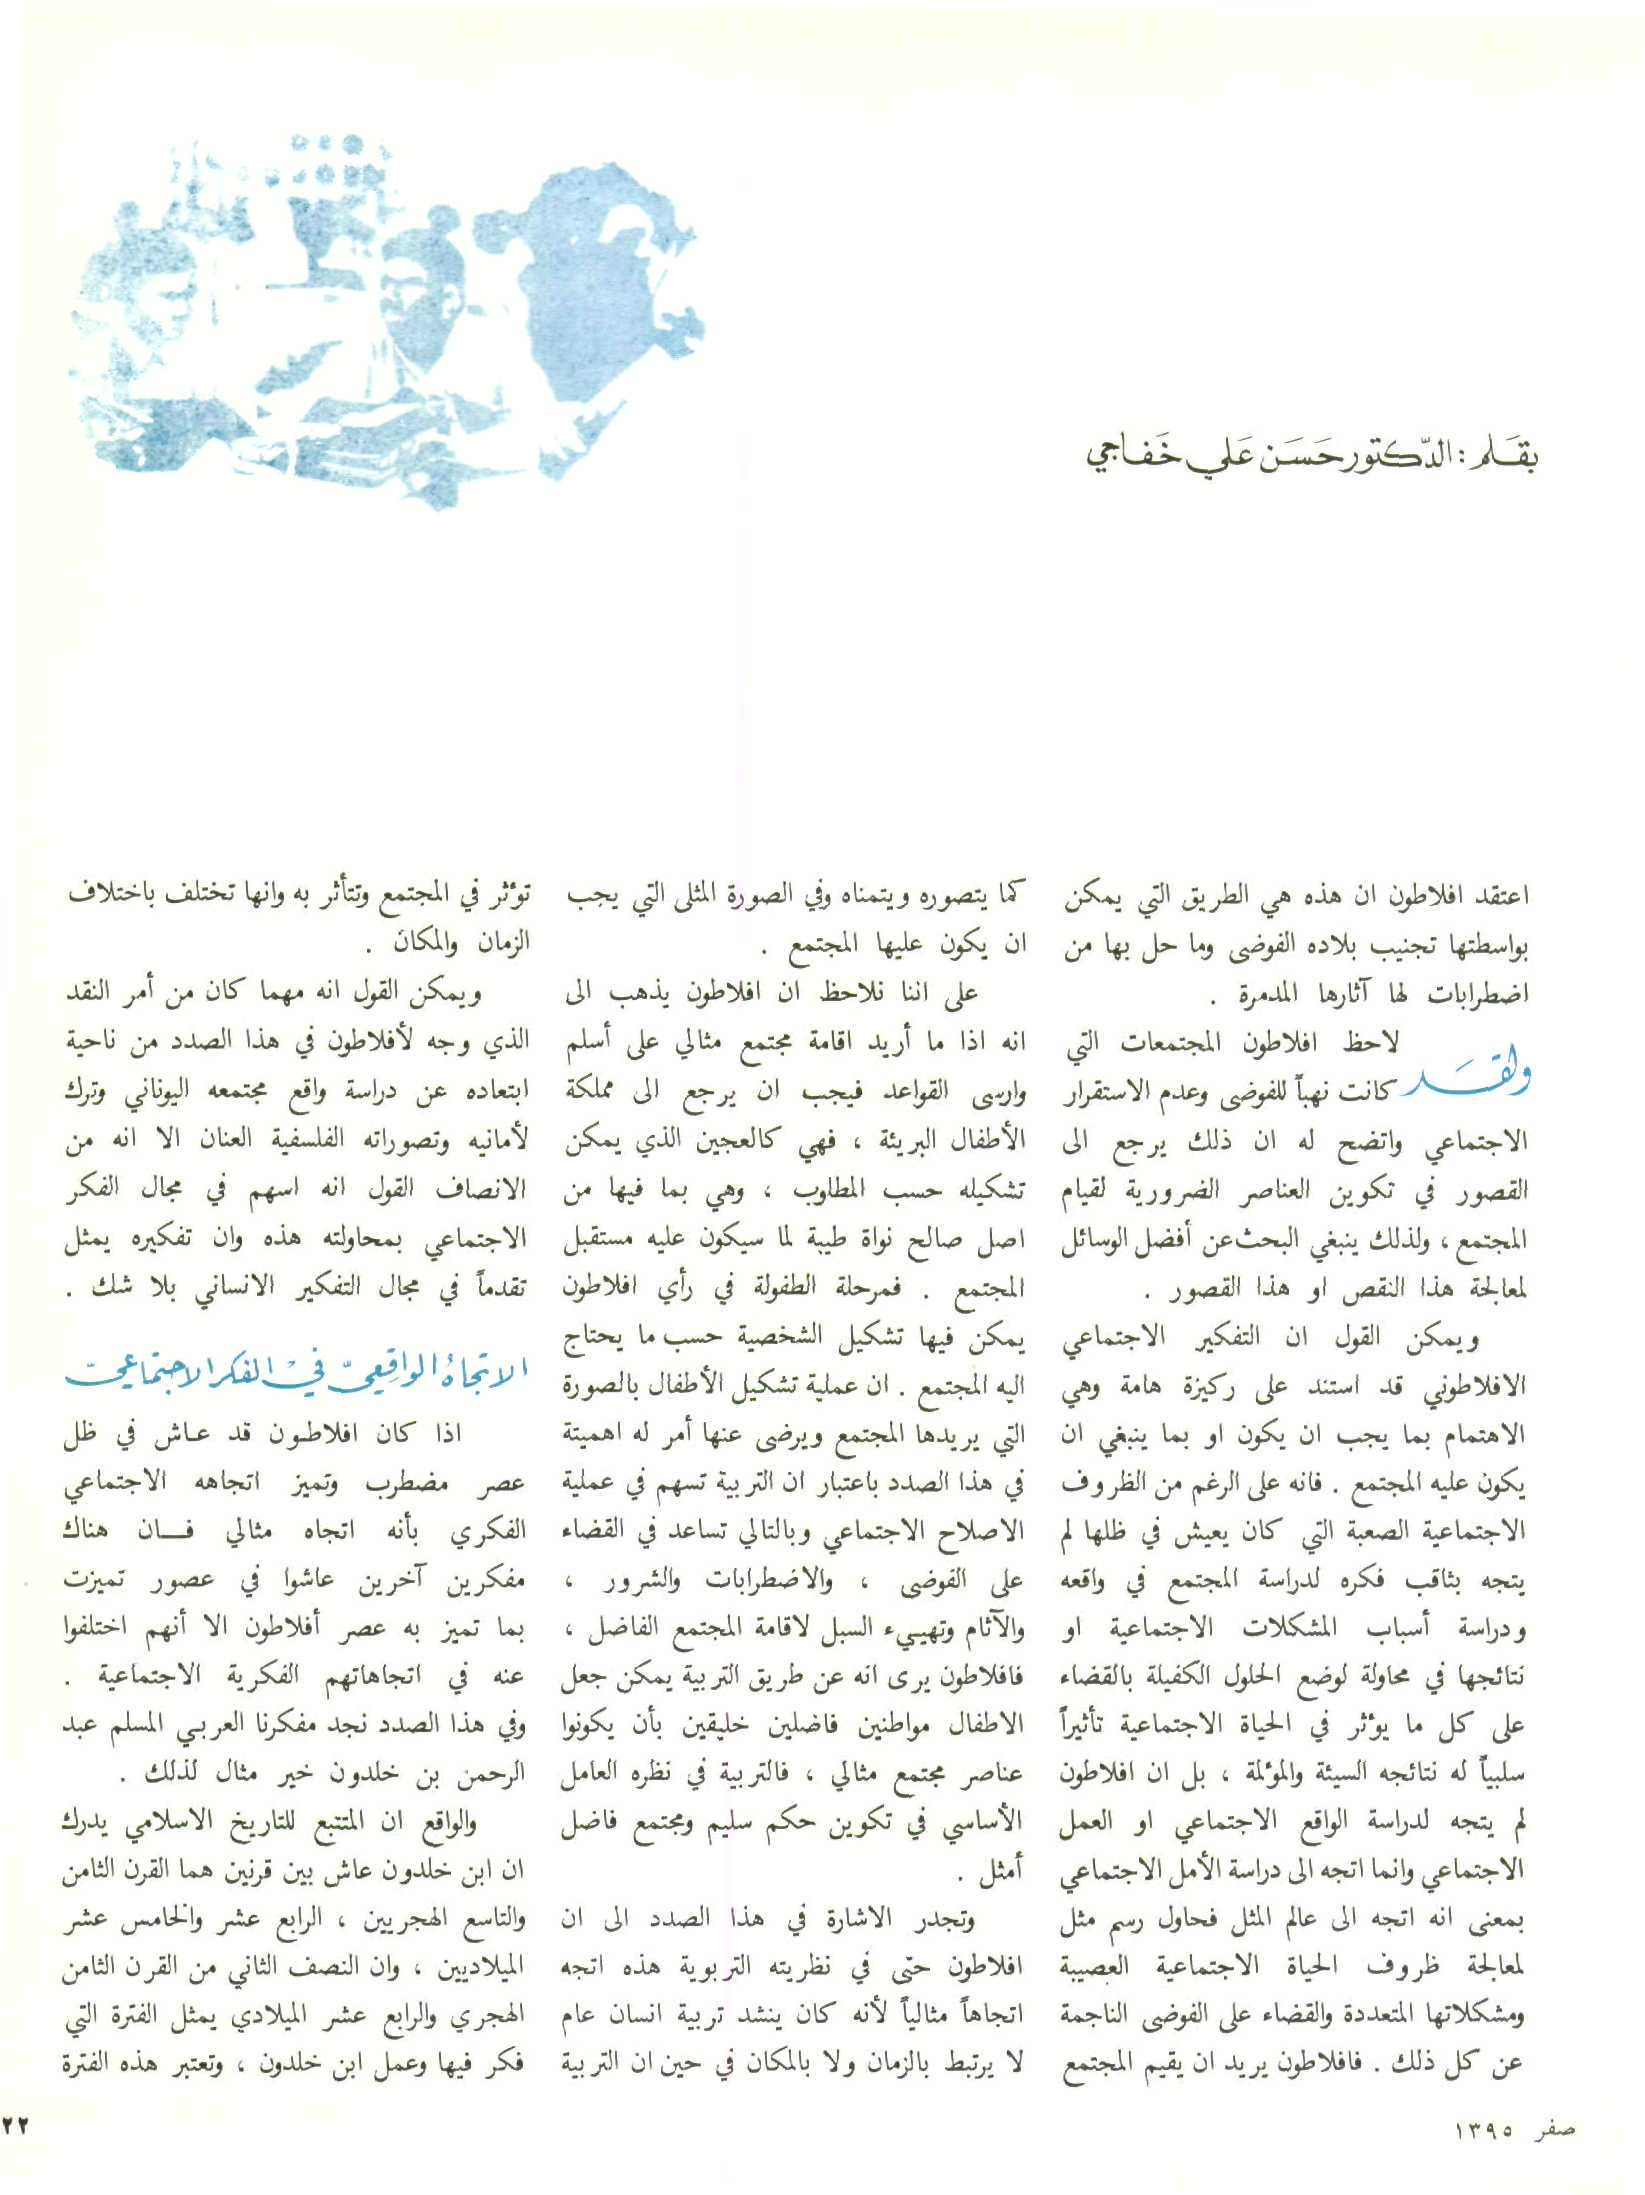 بقلم : الدكتور حسن علي خفاجي
اعتقد افلاطون ان هذه هي الطريق التي يمكن
بواسطتها تجنيب بلاده الفوضى وما حل بها من
اضطرابات لها آثارها المدمرة .
ولقد لاحظ افلاطون المجتمعات التي
كانت نهباً للفوضى وعدم الاستقرار
الاجتماعي واتضح له ان ذلك يرجع الى
القصور في تكوين العناصر الضرورية لقيام
المجتمع ، ولذلك ينبغي البحث عن أفضل الوسائل
لمعالجة هذا النقص او هذا القصور .
ويمكن القول ان التفكير الاجتماعي
الافلاطوني قد استند على ركيزة هامة وهي
الاهتمام بما يجب ان يكون او بما ينبغي ان
يكون عليه المجتمع . فانه على الرغم من الظروف
الاجتماعية الصعبة التي كان يعيش في ظلها لم
يتجه بثاقب فكره لدراسة المجتمع في واقعه
ودراسة أسباب المشكلات الاجتماعية او
نتائجها في محاولة لوضع الحلول الكفيلة بالقضاء
على كل ما يؤثر في الحياة الاجتماعية تأثيراً
سلبياً له نتائجه السيئة والمؤلمة ، بل ان افلاطون
لم يتجه لدراسة الواقع الاجتماعي او العمل
الاجتماعي وانما اتجه الى دراسة الأمل الاجتماعي
بمعنى انه اتجه الى عالم المثل فحاول رسم مثل
لمعالجة ظروف الحياة الاجتماعية العصيبة
ومشكلاتها المتعددة والقضاء على الفوضى الناجمة
عن كل ذلك . فافلاطون يريد ان يقيم المجتمع
كما يتصوره ويتمناه وفي الصورة المثلى التي يجب
ان يكون عليها المجتمع .
على اننا نلاحظ ان افلاطون يذهب الى
انه اذا ما أريد اقامة مجتمع مثالي على أسلم
وارسى القواعد فيجب ان يرجع الى مملكة
الأطفال البريئة ، فهي كالعجين الذي يمكن
تشكيله حسب المطلوب ، وهي بما فيها من
اصل صالح نواة طيبة لما سيكون عليه مستقبل
المجتمع . فمرحلة الطفولة في رأي افلاطون
يمكن فيها تشكيل الشخصية حسب ما يحتاج
اليه المجتمع . ان عملية تشكيل الأطفال بالصورة
التي يريدها المجتمع ويرضى عنها أمر له اهميتة
في هذا الصدد باعتبار ان التربية تسهم في عملية
الاصلاح الاجتماعي وبالتالي تساعد في القضاء
على الفوضى ، والاضطرابات والشرور ،
والآثام وتهييء السبل لاقامة المجتمع الفاضل ،
فافلاطون يرى انه عن طريق التربية يمكن جعل
الاطفال مواطنين فاضلين خليقين بأن يكونوا
عناصر مجتمع مثالي ، فالتربية في نظره العامل
الأساسي في تكوين حكم سليم ومجتمع فاضل
أمثل .
وتجدر الاشارة في هذا الصدد الى ان
افلاطون حتى في نظريته التربوية هذه اتجه
اتجاهاً مثالياً لأنه كان ينشد تربية انسان عام
لا يرتبط بالزمان ولا بالمكان في حين ان التربية
تؤثر في المجتمع وتتأثر به وانها تختلف باختلاف
الزمان والمكان .
ويمكن القول انه مهما كان من أمر النقد
الذي وجه لأفلاطون في هذا الصدد من ناحية
ابتعاده عن دراسة واقع مجتمعه اليوناني وترك
لأمانيه وتصوراته الفلسفية العنان الا انه من
الانصاف القول انه اسهم في مجال الفكر
الاجتماعي بمحاولته هذه وان تفكيره يمثل
تقدماً في مجال التفكير الانساني بلا شك .
الاتجاه الواقعي في الفكر الاجتماعي
اذا كان افلاطون قد عاش في ظل
عصر مضطرب وتميز اتجاهه الاجتماعي
الفكري بأنه اتجاه مثالي فان هناك
مفكرين آخرين عاشوا في عصور تميزت
بما تميز به عصر أفلاطون الا أنهم اختلفوا
عنه في اتجاهاتهم الفكرية الاجتماعية .
وفي هذا الصدد نجد مفكرنا العربي المسلم عبد
الرحمن بن خلدون خير مثال لذلك .
والواقع ان المتتبع للتاريخ الاسلامي يدرك
ان ابن خلدون عاش بين قرنين هما القرن الثامن
والتاسع الهجريين ، الرابع عشر والخامس عشر
الميلاديين ، وان النصف الثاني من القرن الثامن
الهجري والرابع عشر الميلادي يمثل الفترة التي
فكر فيها وعمل ابن خلدون ، وتعتبر هذه الفترة
صفر ١٣٩٥
٢٢